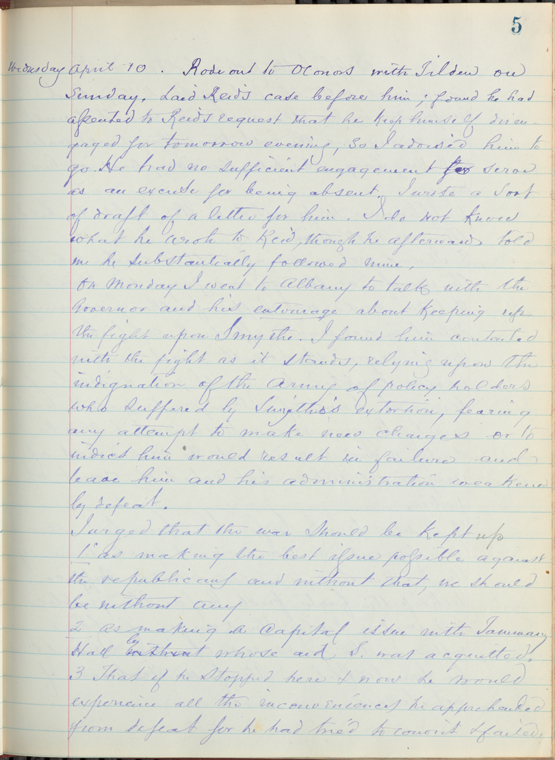 5
Wednesday April 10. Rode out to OConors with Tilden on
Sunday. Laid Reid's case before him; found he had
assented to Reid's request that he keep himself disen-
gaged for tomorrow evening, So I advised him to
go. He had no sufficient engagement for serve
as an excuse for being absent. I wrote a sort
of draft of a letter for him. I do not know
what he wrote to Reid, though he afterward told
me he substantially followed mine.
On Monday I went to Albany to talk with the
Governor and his entourage about keeping up
the fight upon Smythe. I found him contented
with the fight as it stands, relying upon the
indignation of the army of policy holders
who suffered by Smythe's extortion, fearing
any attempt to make new charges or to
indict him would result in failure and
leave him and his administration weakened
by defeat.
I urged that the war should be kept up
1st as making the best issue possible against
the republicans and without that, we should
be without any
2 as making a Capital issue with Tammany
Hall by whose aid S. was acquitted.
3 That if he stopped here & now he would
experience all the inconveniences he apprehended
from defeat for he had tried to convict & failed.